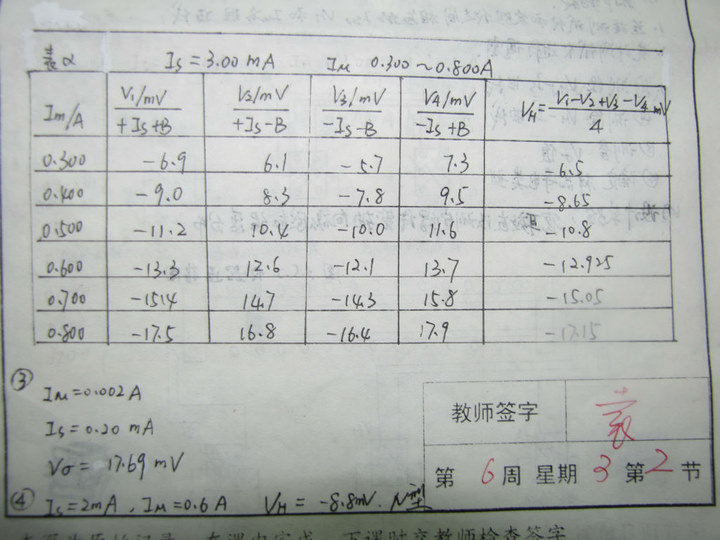 表α Is = 3.00 mA IM 0.300~0.800A
Im/A V1/mV +Is+B V2/mV +Is-B V3/mV -Is-B V4/mV -Is+B VH = V1-V2+V3-V4 mV / 4
0.300 -6.9 6.1 -5.7 7.3 -6.5
0.400 -9.0 8.3 -7.8 9.5 -8.65
0.500 -11.2 10.4 -10.0 11.6 -10.8
0.600 -13.3 12.6 -12.1 13.7 -12.925
0.700 -15.4 14.7 -14.3 15.8 -15.05
0.800 -17.5 16.8 -16.4 17.9 -17.15
③
IM=0.002A
Is=0.20 mA
Vσ= 17.69 mV
④ Is=2mA, IM=0.6A VH = -8.8mV. N型
教师签字
第 6 周 星期 3 第 2 节